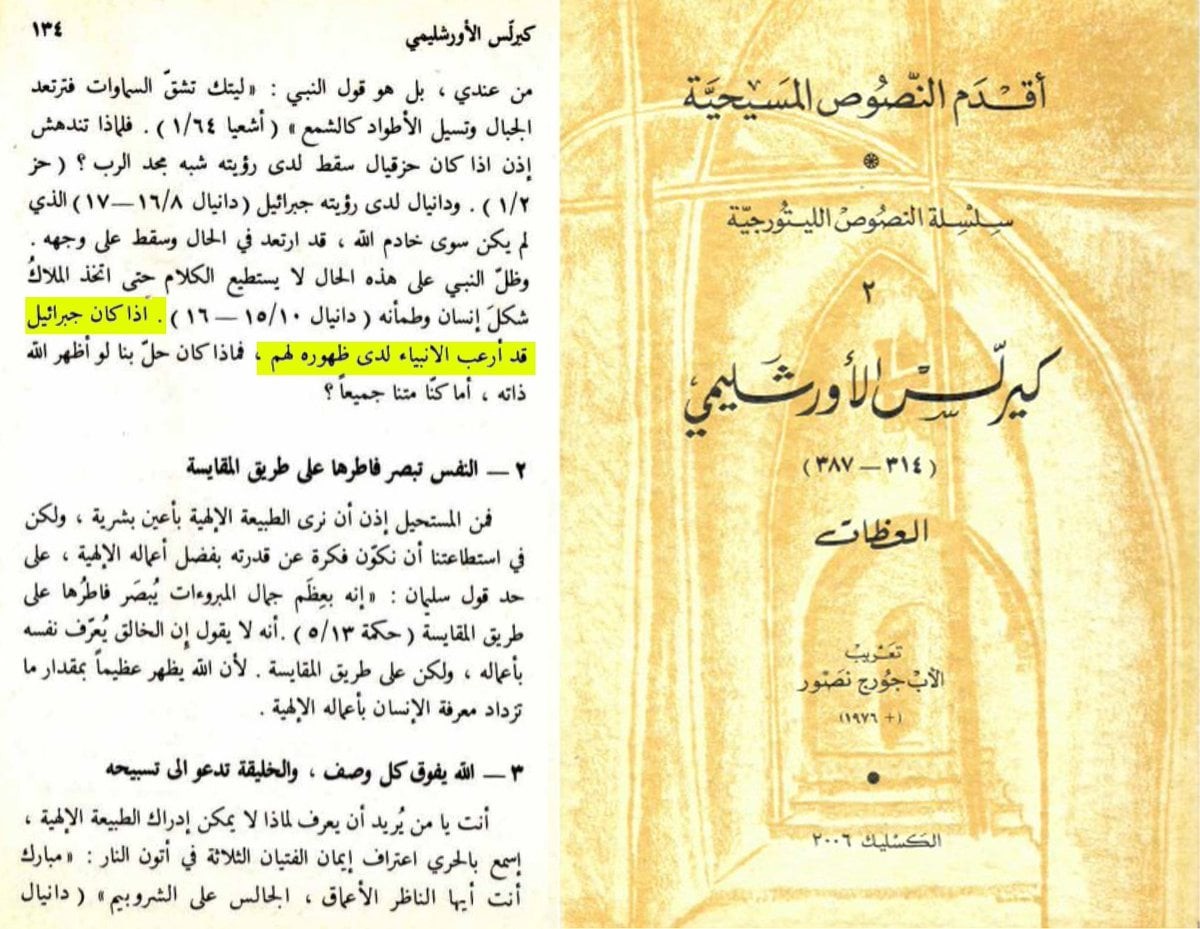 كيرلّس الأورشليمي ١٣٤
من عندي ، بل هو قول النبي : « ليتك تشقّ السماوات فترتعد
الجبال وتسيل الأطواد كالشمع » ( أشعيا ١/٦٤ ) . فلماذا تندهش
إذن اذا كان حزقيال سقط لدى رؤيته شبه مجد الرب ؟ ( حز
١/٢ ) . ودانيال لدى رؤيته جبرائيل ( دانيال ١٦/٨—١٧ ) الذي
لم يكن سوى خادم الله ، قد ارتعد في الحال وسقط على وجهه .
وظلّ النبي على هذه الحال لا يستطيع الكلام حتى اتخذ الملاكُ
شكلَ إنسان وطمأنه ( دانيال ١٥/١٠ — ١٦ ) . اذا كان جبرائيل
قد أرعب الانبياء لدى ظهوره لهم ، فماذا كان حلّ بنا لو أظهر الله
ذاته ، أما كنّا متنا جميعاً ؟
٢ — النفس تبصر فاطرها على طريق المقايسة
فمن المستحيل إذن أن نرى الطبيعة الإلهية بأعين بشرية ، ولكن
في استطاعتنا أن نكوّن فكرة عن قدرته بفضل أعماله الإلهية ، على
حد قول سليمان : « إنه بعِظَم جمال المبروءات يُبصَر فاطرُها على
طريق المقايسة ( حكمة ٥/١٣ ) . أنه لا يقول إن الخالق يُعرّف نفسه
بأعماله ، ولكن على طريق المقايسة . لأن الله يظهر عظيماً بمقدار ما
تزداد معرفة الإنسان بأعماله الإلهية .
٣ — الله يفوق كل وصف ، والخليقة تدعو الى تسبيحه
أنت يا من يُريد أن يعرف لماذا لا يمكن إدراك الطبيعة الإلهية ،
إسمع بالحري اعتراف إيمان الفتيان الثلاثة في أتون النار : « مبارك
أنت أيها الناظر الأعماق ، الجالس على الشروبيم » ( دانيال
أقدم النصُوص المسَيحيَّة
سِلسِلة النصُوصْ الليتورجيَّة
٢
كيرلّسْ الأورشَليمي
( ٣١٤ — ٣٨٧ )
العظات
تعَريبْ
الأبْ جُورج نصّور
( + ١٩٧٦ )
الكسليك ٢٠٠٦